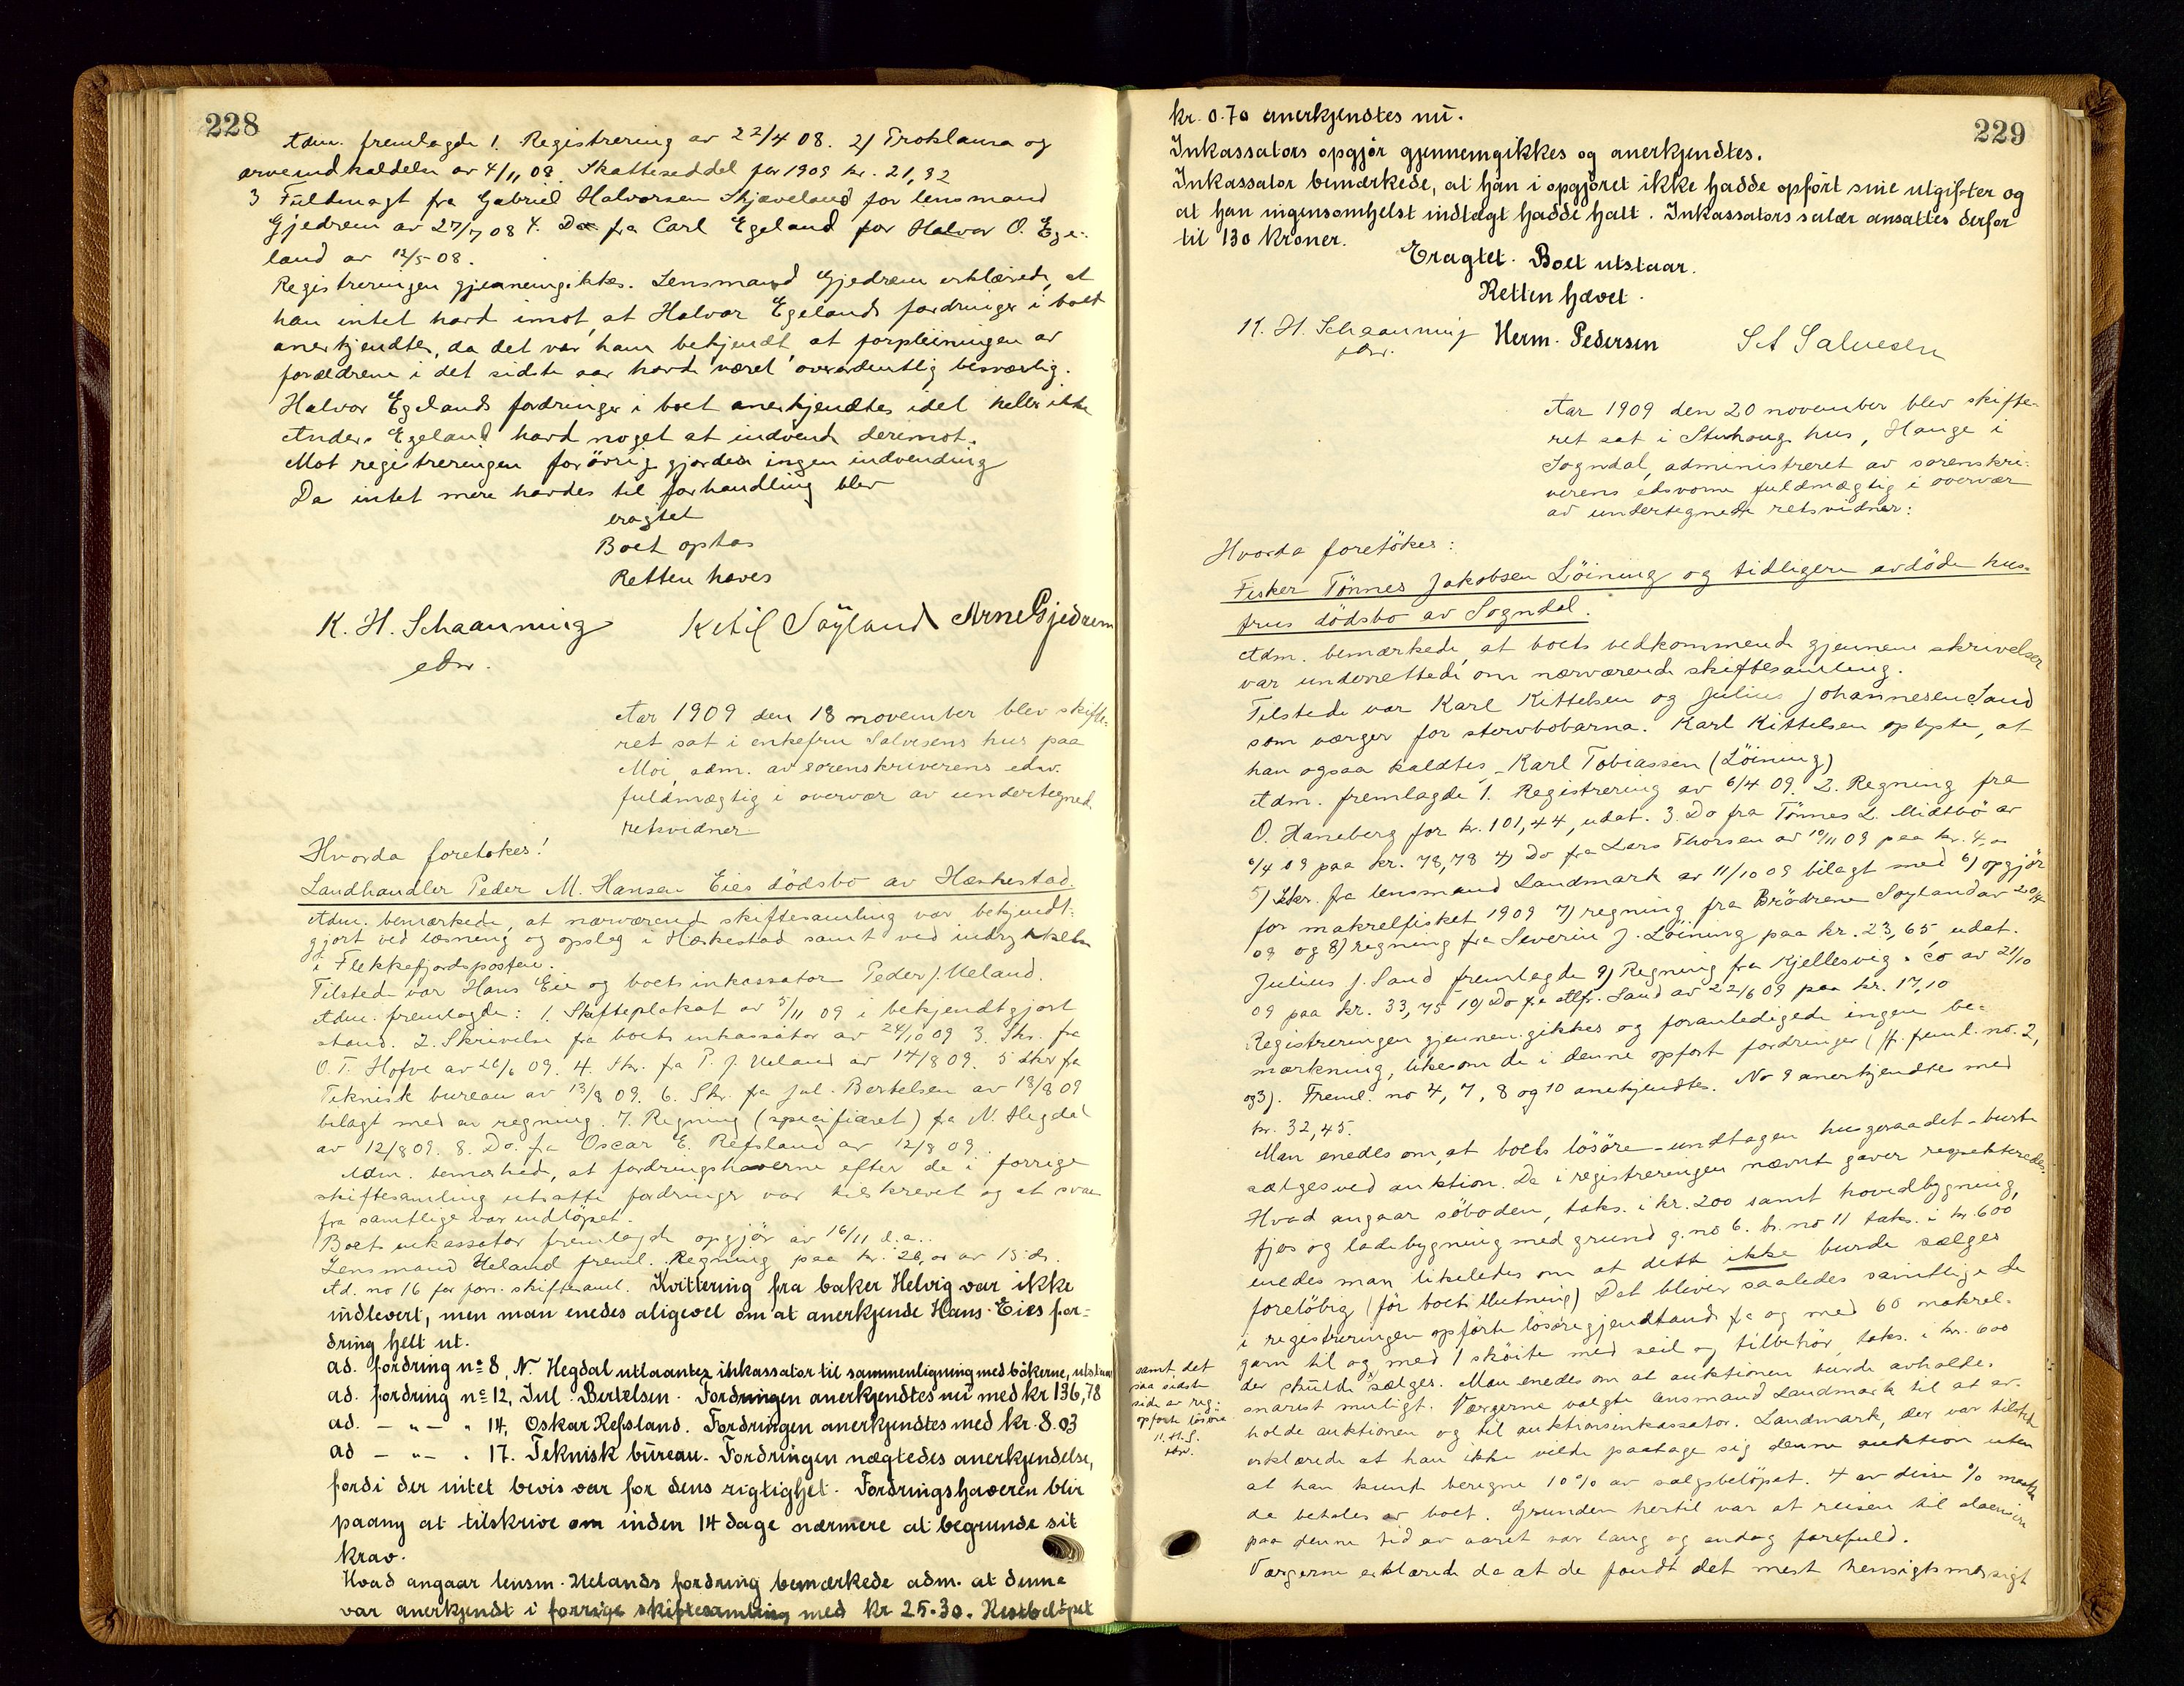 228
Adm. fremlagde 1. Registrering av 22/4 08. 2) Proklama og
arveindkaldelse av 4/11 08. Skatteseddel for 1909 kr. 21,82
3 Fuldmagt fra Gabriel Halvorsen Skjæveland for lensmand
Gjedrem av 27/7 08 4. Do fra Carl Egeland for Halvor O. Ege-
land av 12/5-08.
Registreringen gjennemgikkes. Lensmand Gjedrem erklærede, at
han intet havd imot, at Halvor Egelands fordringer i boet
anerkjendtes, da det var ham bekjendt, at forpleiningen av
forældrene i det sidste aar havde været overordentlig besværlig.
Halvor Egelands fordringer i boet anerkjendtes idet heller ikke
Anders Egeland havd noget at indvende derimot.
Mot registreringen forövrig gjordes ingen indvending
Da intet mere havdes til forhandling blev
eragtet
Boet optas
Retten hæves
K. H. Schaanning
edsv.
Ketil Söyland Arne Gjedrem
Aar 1909 den 18 november blev skifte-
ret sat i enkefru Salvesens hus paa
Moi, adm. av sorenskriverens edsv.
fuldmægtig i overvær av undertegned.
retsvidner
Hvorda foretokes!
Landhandler Peder M. Hansen Eies dödsbo av Hæskestad.
Adm. bemærkede, at nærværende skiftesamling var bekjendt-
gjort ved læsning og opslag i Hæskestad samt ved indrykkelse
i Flekkefjordsposten.
Tilstede var Hans Eie og boets inkassator Peder J. Ueland.
Adm. fremlagde: 1. Skifteplakat av 5/11 09 i bekjendtgjort
stand. 2. Skrivelse fra boets inkassator av 24/10 09 3. Skr. fra
O. T. Hofve av 26/6 09. 4. Skr. fra P. J. Ueland av 14/8 09. 5 skr fra
Teknisk bureau av 13/8 09. 6. Skr. fra Jul. Bertelsen av 18/8 09
bilagt med en regning. 7. Regning (specificeret) fra N. Hegdal
av 12/8 09. 8. Do. fra Oscar E. Refsland av 12/8 09.
Adm. bemærked, at fordringshaverne efter de i forrige
skiftesamling utsatte fordringer var tilskrevet og at svar
fra samtlige var indlöpet.
Boets inkassator fremlagde opgjör av 16/11 d.a..
Lensmand Ueland freml. Regning paa kr. 26,00 av 15 ds.
Ad. no 16 for forr. skiftesaml. Kvittering fra baker Helvig var ikke
indlevert, men man enedes aligevel om at anerkjende Hans Eies for-
dring helt ut.
ad. fordring no 8, N. Hegdal utlaantes inkassator til sammenligning med bökerne, utstaar
ad. fordring no 12, Jul. Bertelsen. Fordringen anerkjendtes nu med kr 136,78
ad. — „ — „ 14, Oskar Refsland. Fordringen anerkjendtes med kr. 8.03
ad — „ — „ 17. Teknisk bureau. Fordringen nægtedes anerkjendelse,
fordi der intet bevis var for dens rigtighet. Fordringshaveren blir
paany at tilskrive om inden 14 dage nærmere at begrunde sit
krav.
Hvad angaar lensm. Uelands fordring bemærkede adm. at denne
var anerkjendt i forrige skiftesamling med kr 25.30. Restbelöpet
229
kr. 0.70 anerkjendtes nu.
Inkassators opgjör gjennemgikkes og anerkjendtes.
Inkassator bemærkede, at han i opgjöret ikke hadde opfört sine utgifter og
at han ingensomhelst indtægt hadde hatt. Inkassators salær ansattes derfor
til 130 kroner.
Eragtet. Boet utstaar.
Retten hævet.
K. H. Schaanning
edsv.
Herm. Pedersen S A Salvesen
Aar 1909 den 20 november blev skifte-
ret sat i Stuhaug hus, Hauge i
Sogndal, administreret av sorenskri-
verens edsvorne fuldmægtig i overvær
av undertegnede retsvidner:
Hvorda foretökes:
Fisker Tönnes Jakobsen Löining og tidligere avdöde hus-
frus dödsbo av Sogndal.
Adm. bemærkede, at boets vedkommende gjennem skrivelser
var underrettede om nærværende skiftesamling.
Tilstede var Karl Kittelsen og Julius Johannesen Sand
som værger for stervbobarna. Karl Kittelsen oplyste, at
han ogsaa kaldtes Karl Tobiassen (Löining)
Adm. fremlagde 1. Registrering av 6/4 09. 2. Regning fra
O. Haneberg for kr. 101,44, udat. 3. Do fra Tönnes L. Midtbö av
6/4 09 paa kr. 78,78 4) Do fra Lars Thorsen av 10/11 09 paa kr. 4,00
5) Skr. fra lensmand Landmark av 11/10 09 bilagt med 6) opgjör
for makrelfisket 1909 7) regning fra Brödrene Soyland av 20/4
09 og 8) regning fra Severin J. Löining paa kr. 23,65, udat.
Julius J. Sand fremlagde 9) Regning fra Kjellesvig & co av 21/10
09 paa kr. 33,75 10) Do fra Alfr. Sand av 22/6 09 paa kr. 17,10
Registreringen gjennemgikkes og foranledigede ingen be-
mærkning, likesom de i denne opfört fordringer (jfr. freml. no. 2,
og 3). Freml. no 4, 7, 8 og 10 anerkjendtes. No 9 anerkjendtes med
kr. 32,45.
Man enedes om, at boets lösöre - undtagen husgeraadet - burde
sælges ved auktion. De i registreringen nævnt gaver respekteredes.
Hvad angaar söboden, taks. i kr. 200 samt hovedbygning,
fjøs og ladebygning med grund g. no 6. br. no 11 taks. i kr. 600
enedes man likeledes om at dette ikke burde sælges
foretöbig (för boets slutning) Det bliver saaledes samtlige de
i registreringen opförte lösöregjendstand fra og med 60 makrel-
garn til og med 1 sköite med seil og tilbehör, taks. i kr. 600
der skulde sælges. Man enedes om at auktionen burde avholdes
snarest muligt. Værgerne valgte lensmand Landmark til at av-
holde auktionen og til auktionsinkassator. Landmark, der var tilsted
erklærede at han ikke vilde paatage sig denne auktion uten
at han kunde beregne 10% av salgsbelöpet. 4 av disse % maatte
da betales av boet. Grunden hertil var at reisen til
paa denne tid av aaret var lang og endog farefuld.
Værgerne erklærede da at de fandt det mest hensigtsmæssigt
samt det
paa sidste
side av reg:
opförte lösöre
K. H. S.
edsv.